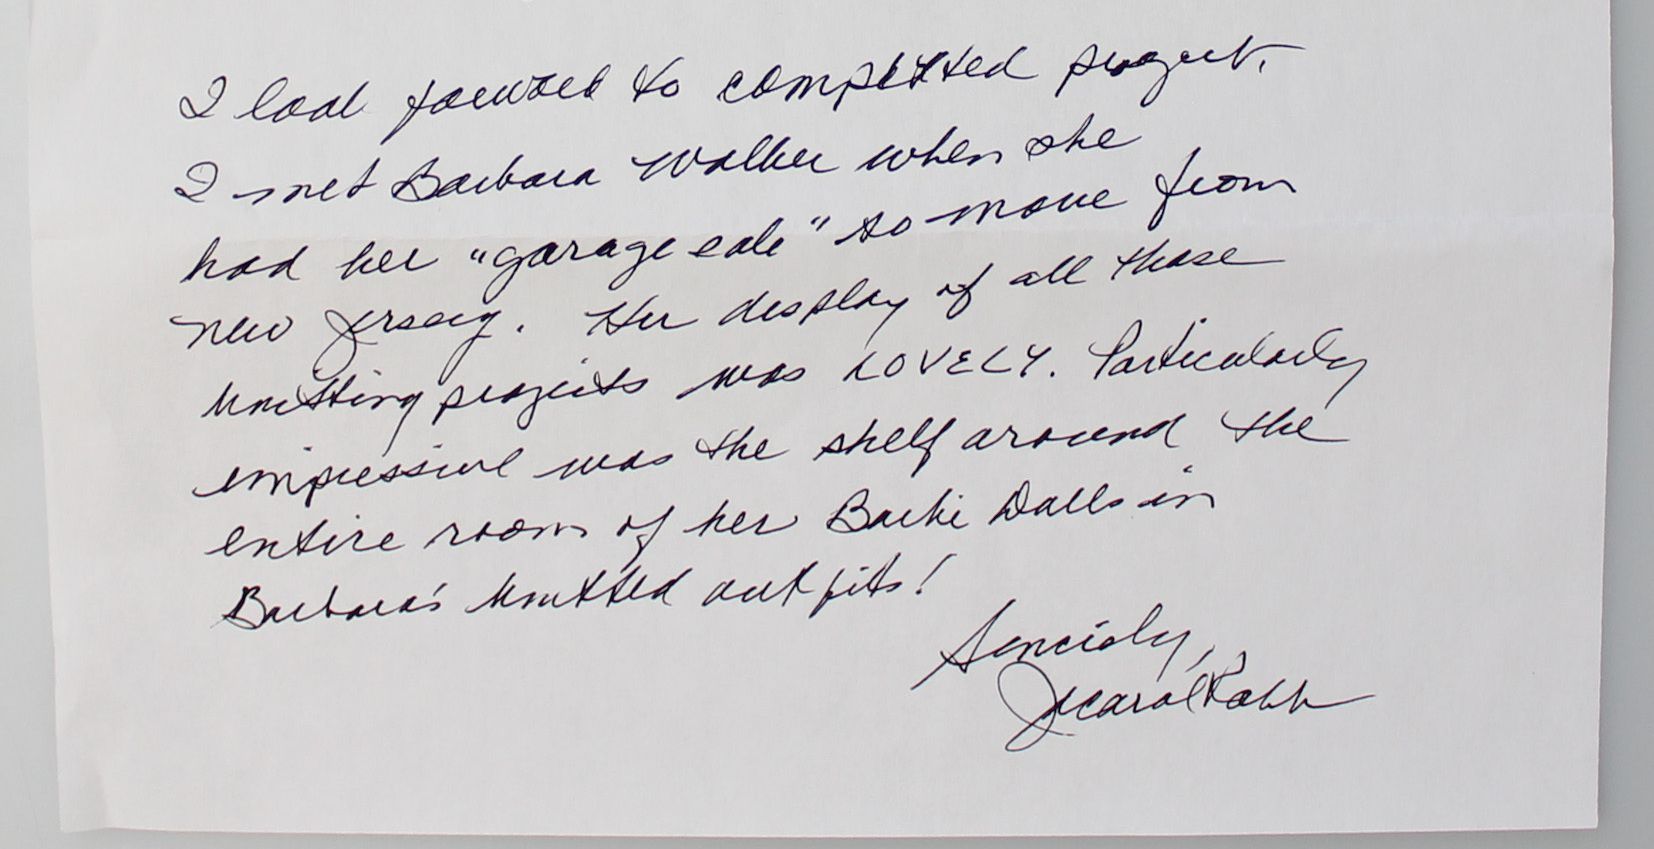 I look forward to completed project.
I met Barbara Walker when she
had her "garage sale" to move from
New Jersey. Her display of all those
knitting projects was LOVELY. Particularly
impressive was the shelf around the
entire room of her Barbie Dolls in
Barbara's knitted outfits!
Sincerly,